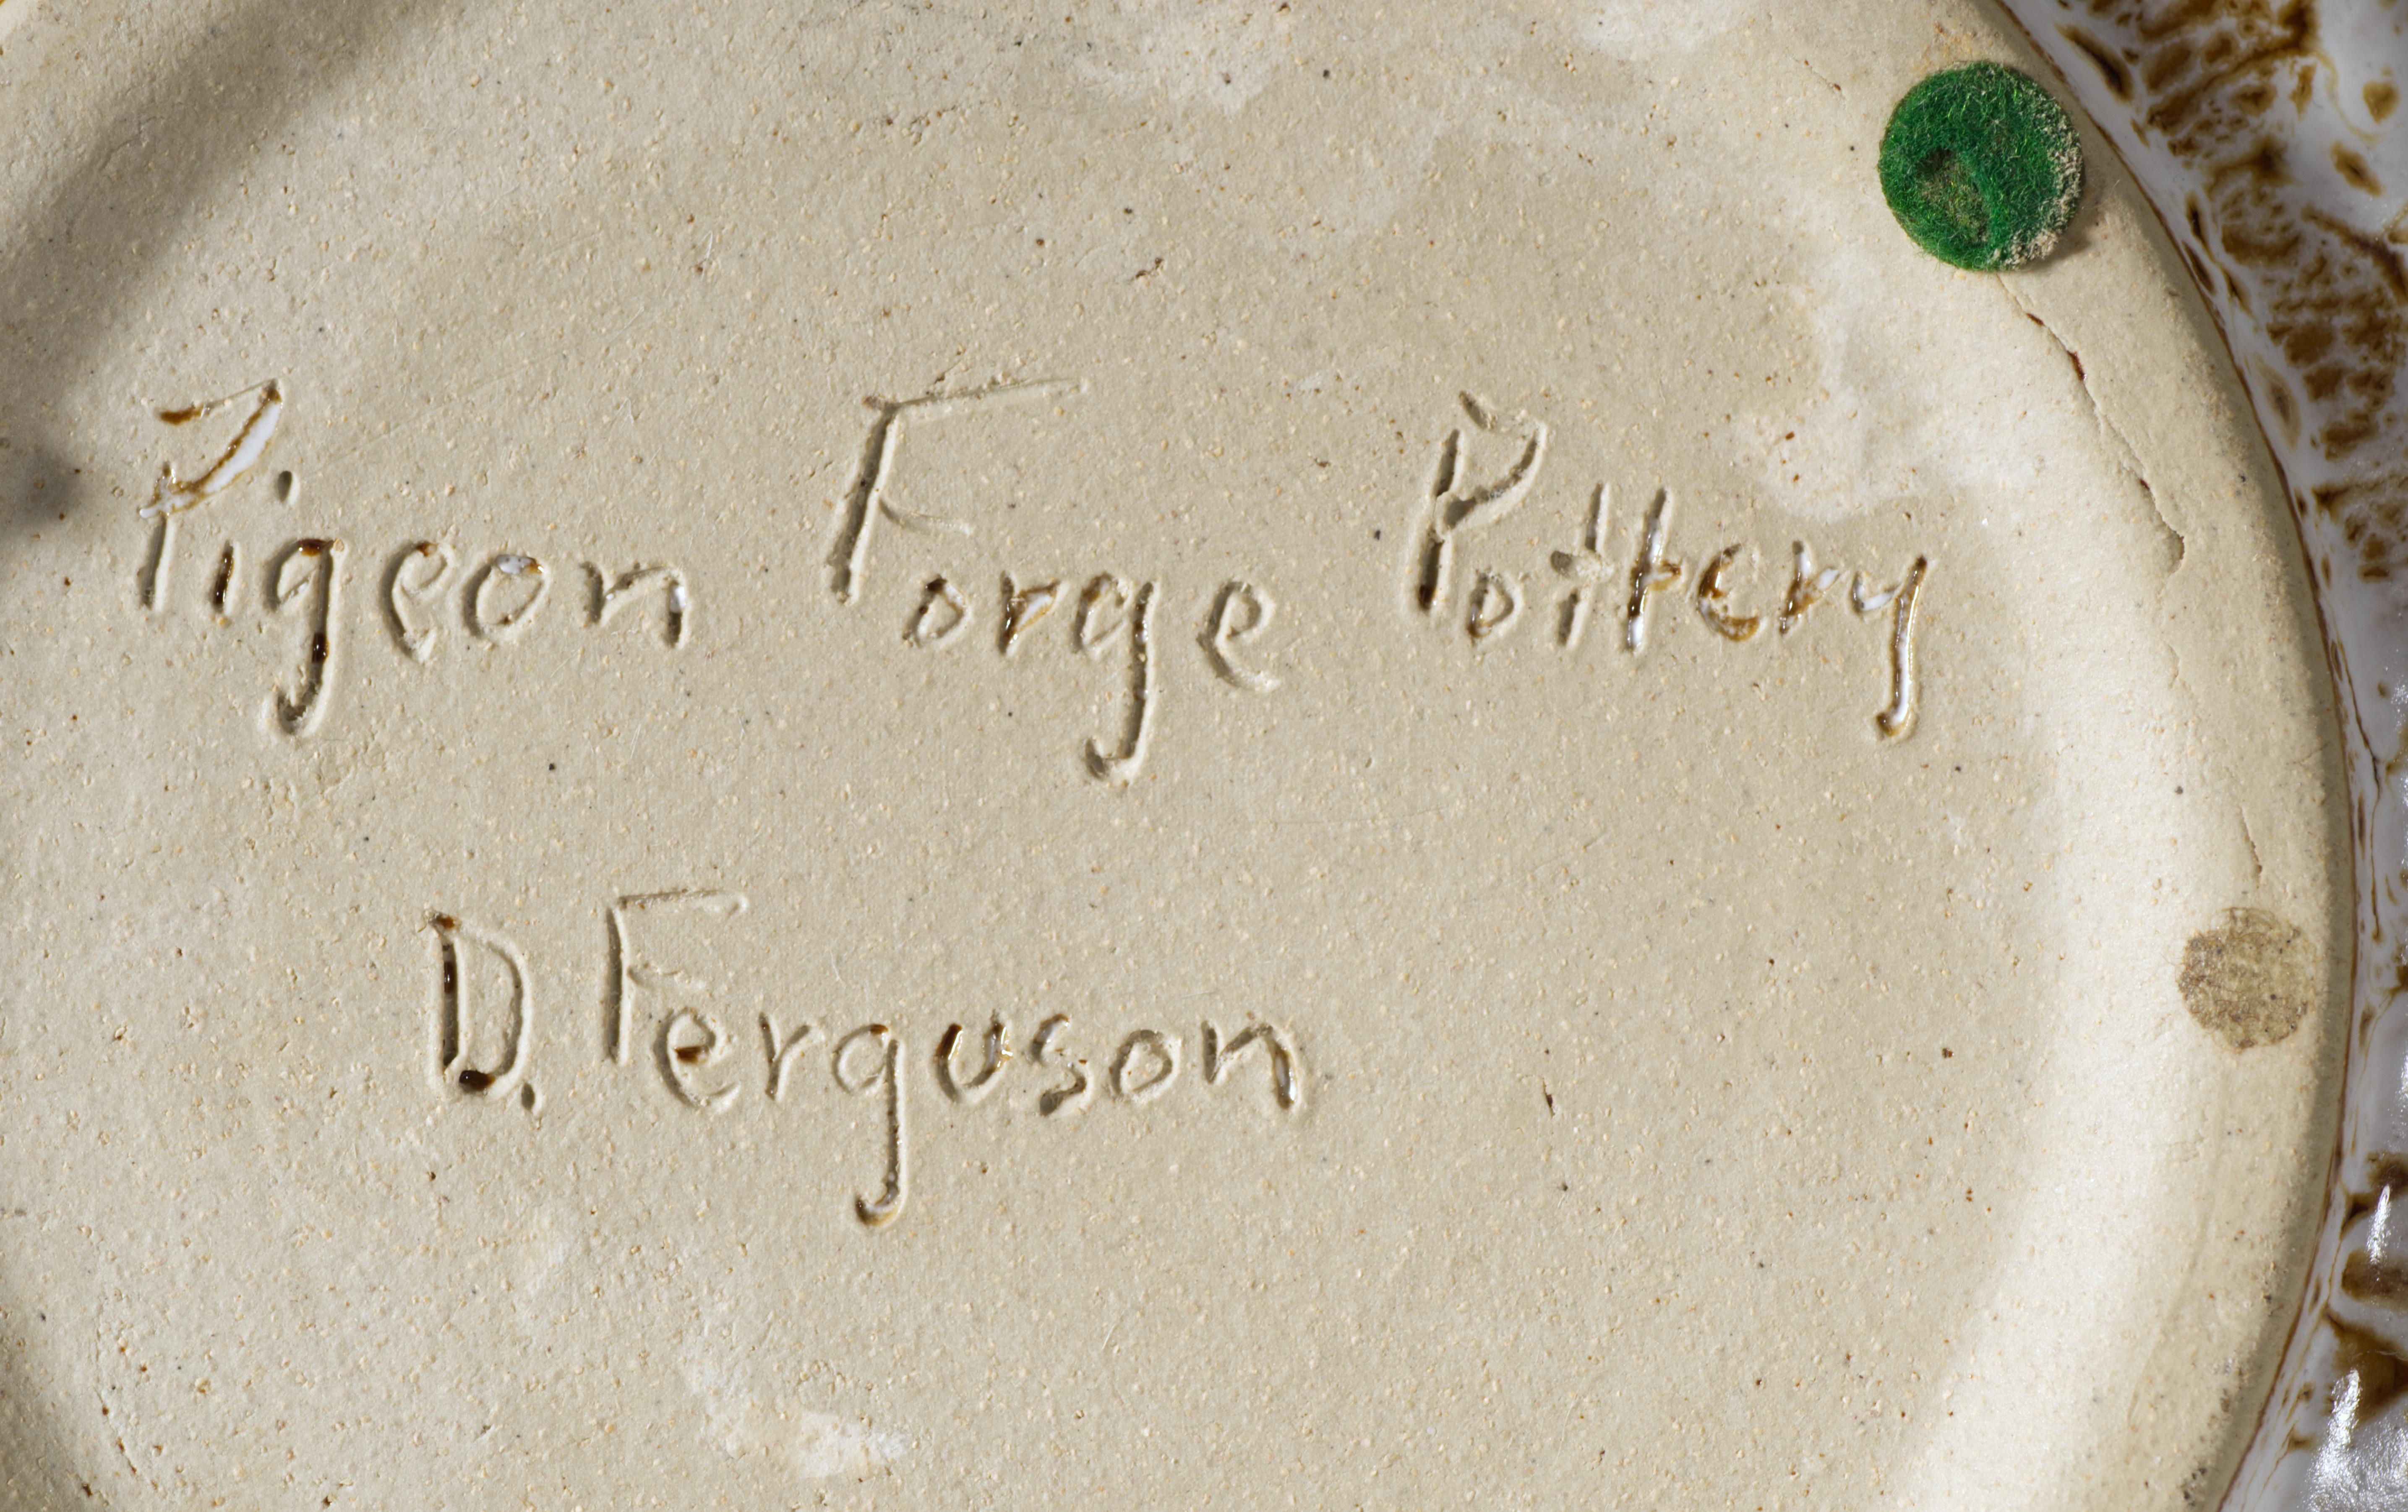 Pigeon Forge Pottery
D. Ferguson